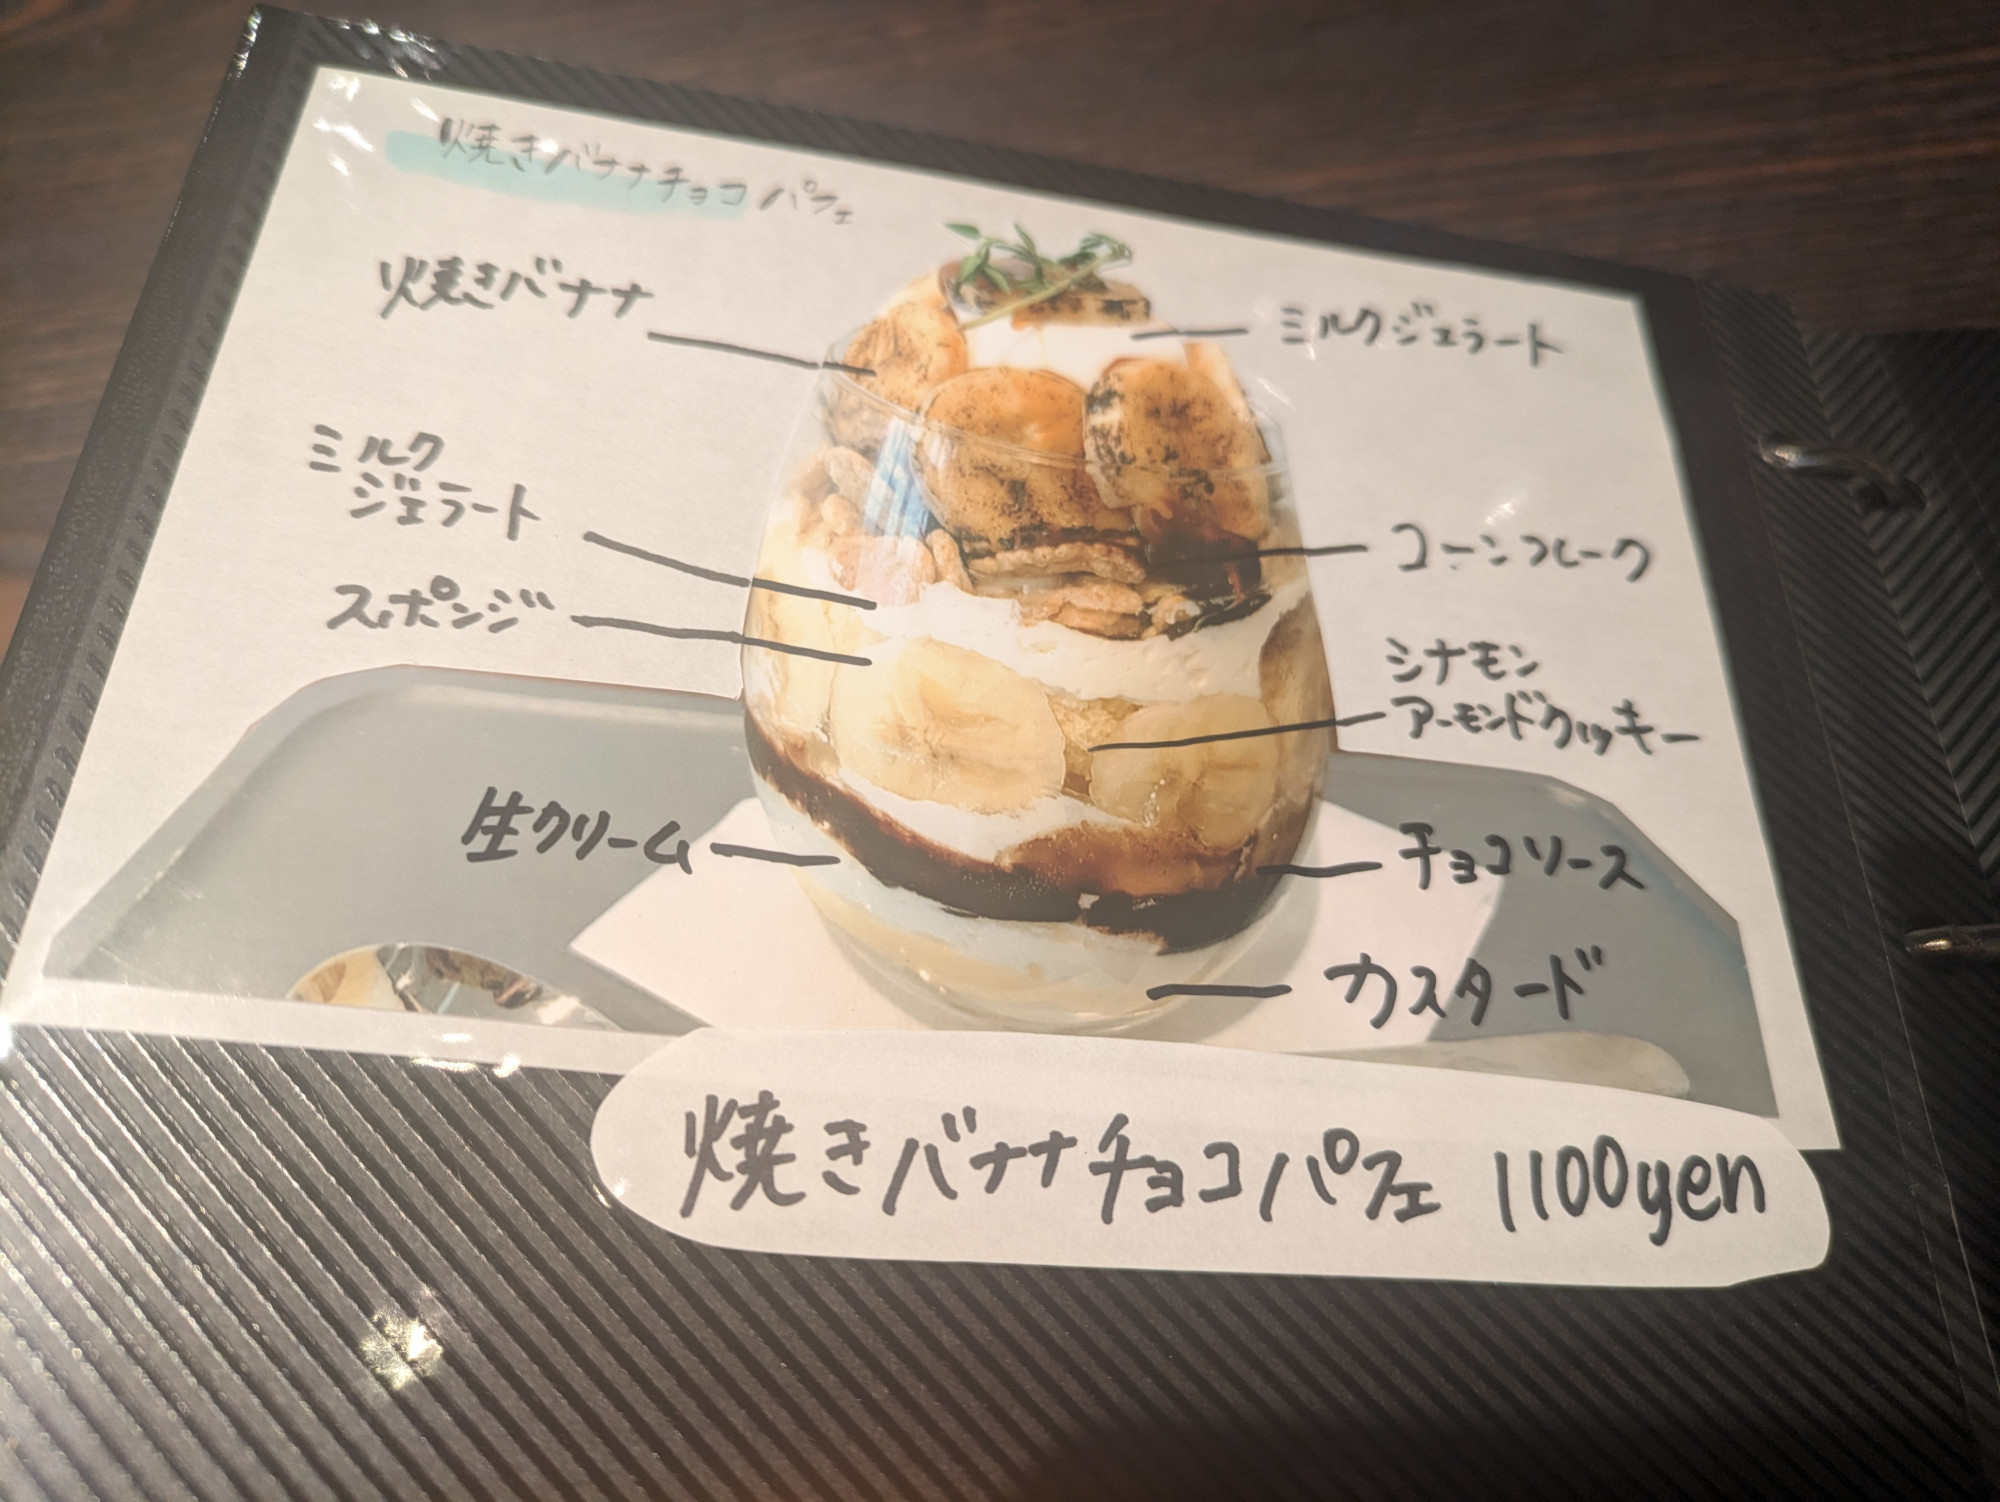 焼きバナナチョコパフェ
焼きバナナ
ミルクジェラート
ミルク
ジェラート
コーンフレーク
スポンジ
シナモン
アーモンドクッキー
生クリーム
チョコソース
カスタード
焼きバナナチョコパフェ 1100yen